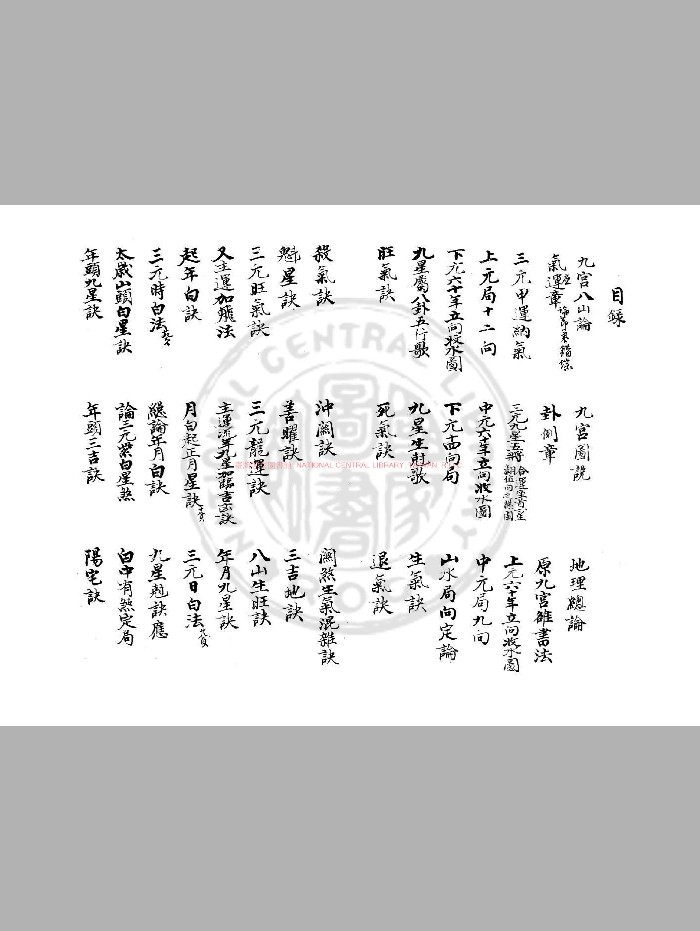 目錄
九宮八山論 九宮圖說 地理總論
氣運章 卦例章 原九宮雒書法
三元甲運納氣 三元九星五將 上元六十年立向收水圖
上元局十二向 中元六十年立向收水圖 中元局九向
下元六十年立向收水圖 下元十四向局 山水局向定論
九星屬八卦五行歌 九星生尅歌 生氣訣
旺氣訣 死氣訣 退氣訣
殺氣訣 沖關訣 關煞生氣混雜訣
魁星訣 善曜訣 三吉地訣
三元旺氣訣 三元龍運訣 八山生旺訣
又主運加飛法 主運流年九星加臨吉凶訣 年月九星訣
起年白訣 月白起正月星訣 三元日白法
三元時白法 總論年月白訣 九星尅訣應
太歲山頭白星訣 論三元紫白星煞 白中有煞定局
年頭九星訣 年頭三吉訣 陽宅訣
NATIONAL CENTRAL LIBRARY